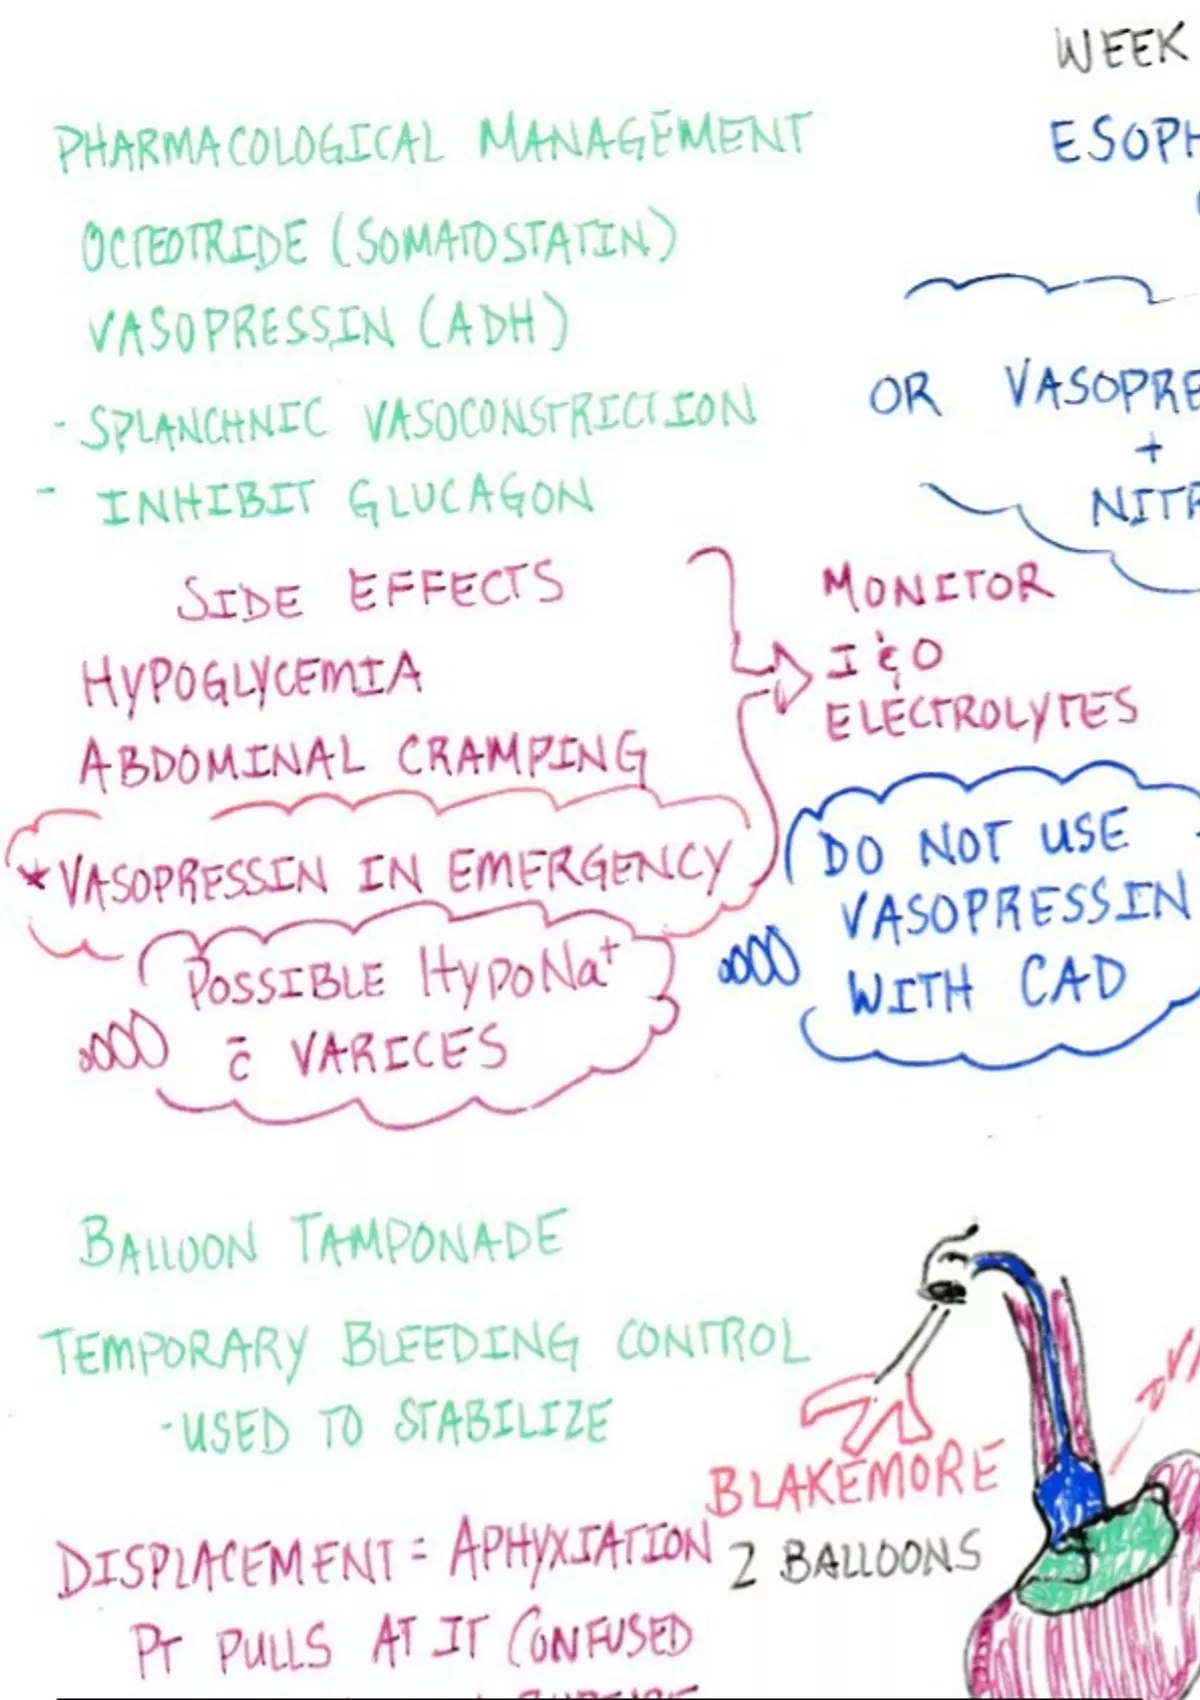 WEEK
ESOPH
PHARMACOLOGICAL MANAGEMENT
OCTEOTRIDE (SOMATOSTATIN)
VASOPRESSIN (ADH)
- SPLANCHNIC VASOCONSTRICTION
- INHIBIT GLUCAGON
OR VASOPRE
+
NITR
SIDE EFFECTS
HYPOGLYCEMIA
ABDOMINAL CRAMPING
MONITOR
I & O
ELECTROLYTES
* VASOPRESSIN IN EMERGENCY
POSSIBLE HYPONa+
c̄ VARICES
DO NOT USE
VASOPRESSIN
WITH CAD
BALLOON TAMPONADE
TEMPORARY BLEEDING CONTROL
- USED TO STABILIZE
BLAKEMORE
2 BALLOONS
DISPLACEMENT = APHYXIATION
PT PULLS AT IT CONFUSED